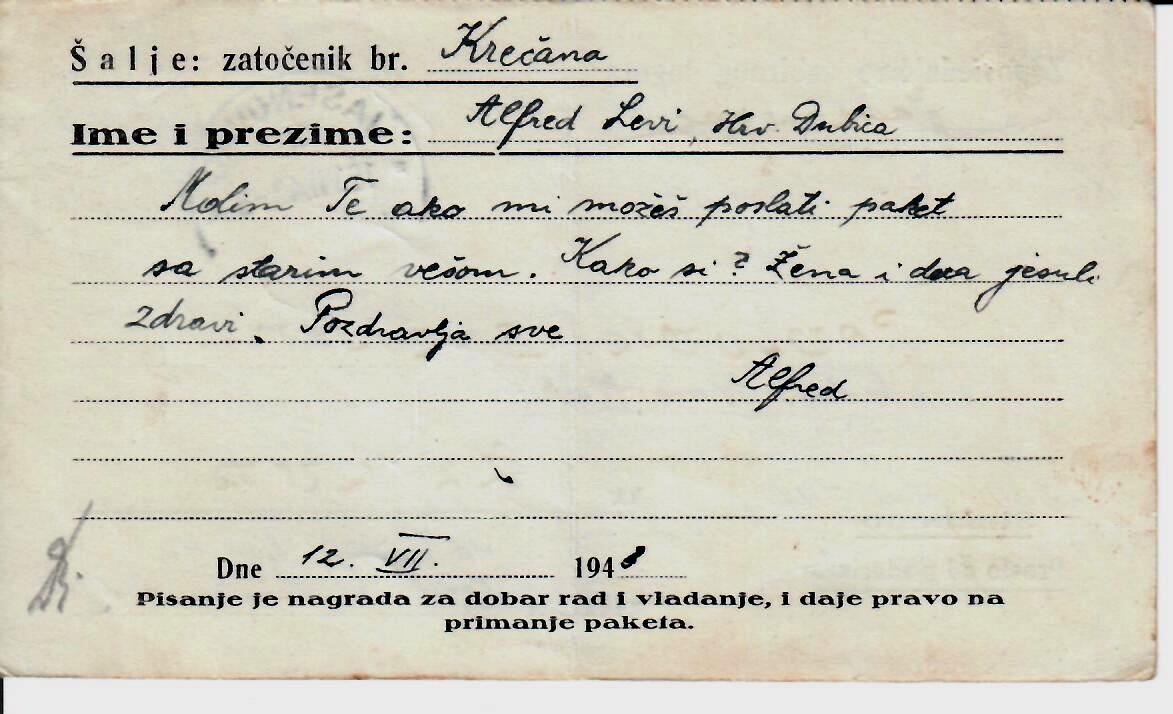 Šalje: zatočenik br. Krečana
Ime i prezime: Alfred Levi, Hrv. Dubica
Molim Te ako mi možeš poslati paket
sa starim vešom. Kako si? Žena i deca jesuli
zdravi. Pozdravlja sve
Alfred
Dne 12. VII. 194
Pisanje je nagrada za dobar rad i vladanje, i daje pravo na
primanje paketa.